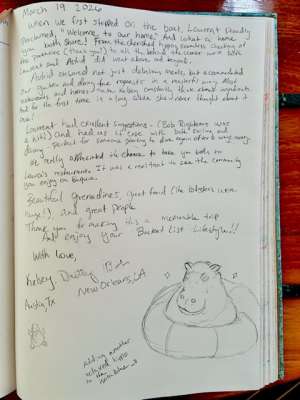 March 19, 2026
When we first stepped on the boat, Laurent proudly
proclaimed, "Welcome to our home." And what a home
you both share! From the cherished hippos
the pancakes (thank you!) to all the
Laurent and Astrid did went above and beyond.
Astrid ensured not just delicious meals, but accommodated
our gluten and dairy free requests in a masterful way. Most
restaurants and homes make Kelsey constantly think about ingredients
but for the first time in a long while she never thought about it
once!
Laurent had excellent suggestions - (Bob Righteous was
a hit!) and had us at ease with both sailing and
diving. Perfect for someone getting to dive again after
We really appreciated the chance to take you both to
restaurant. It was a real treat to see the community
you enjoy on Bequia.
Beautiful Grenadines, great food (the lobsters were
huge!), and great people.
Thank you for making this a memorable trip
And enjoy your Bucket List Lifestyle!!
With love,
Kelsey,
Austin, TX
New Orleans, LA
Adding another
hippo
to the